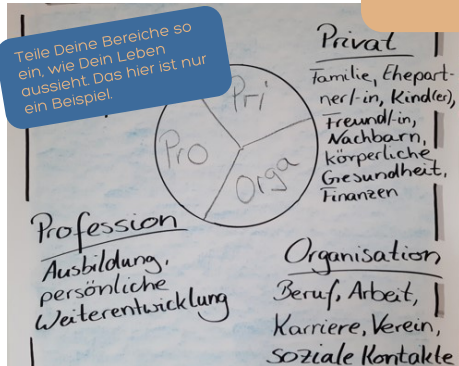 Teile Deine Bereiche so
ein, wie Dein Leben
aussieht. Das hier ist nur
ein Beispiel.
Privat
Familie, Ehepart-
ner/-in, Kind(er),
Freund/-in,
Nachbarn,
körperliche
Gesundheit,
Finanzen
Pri
Pro
Orga
Profession
Ausbildung,
persönliche
Weiterentwicklung
Organisation
Beruf, Arbeit,
Karriere, Verein,
soziale Kontakte